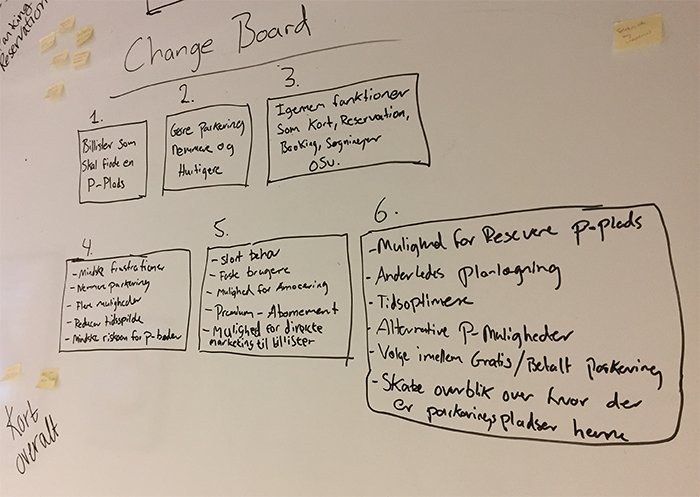 Reservation
Change Board
1.
Billister som
Skal finde en
P-Plads
2.
Gøre Parkering
nemmere og
Hurtigere
3.
Igennem funktioner
Som Kort, Reservation,
Booking, Søgninger
OSV.
4.
- Mindske frustrationer
- Nemmere parkering
- Flere muligheder
- Reducer tidsspilde
- Mindske risikoen for P-bøder
5.
- Stort behov
- Faste brugere
- Mulighed for Annocering
- Premium - Abonnement
- Mulighed for direkte
marketing til billister
6.
- Mulighed for Reservere P-plads
- Anderledes planlægning
- Tidsoptimere
- Alternative P-Muligheder
- Vælge imellem Gratis/Betalt parkering
- Skabe overblik over hvor der
er parkeringspladser henne
Kort
overalt